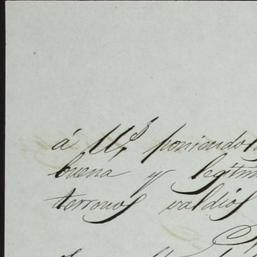 á Ud. poniendo
buena y legítim
terrenos valdíos